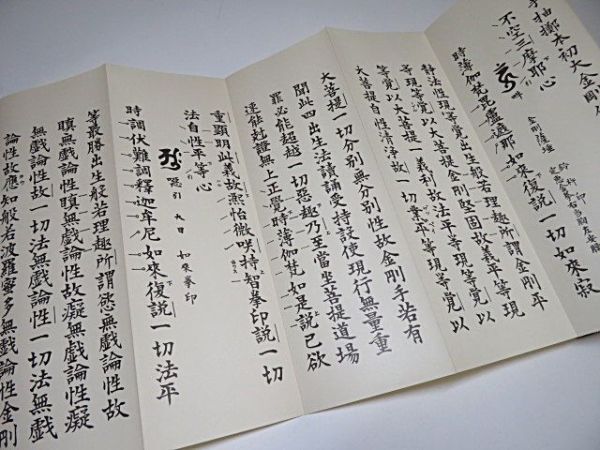 手抽擲本初大金剛
不空三摩耶心
吽
時薄伽梵毘盧遮那如來復説一切如來寂
靜法性現等覺出生般若理趣所謂金剛平
等現等覺以大菩提金剛堅固故義平等現
等覺以大菩提一義利故法平等現等覺以
大菩提自性清淨故一切業平等現等覺以
大菩提一切分別無分別性故金剛手若有
聞此四出生法讀誦受持設使現行無量重
罪必能超越一切惡趣乃至當坐菩提道場
速能剋證無上正覺時薄伽梵如是説已欲
重顯明此義故熙怡微咲持智拳印説一切
法自性平等心
惡引 如來拳印
時調伏難調釋迦牟尼如來復説一切法平
等最勝出生般若理趣所謂慾無戲論性故
瞋無戲論性瞋無戲論性故癡無戲論性癡
無戲論性故一切法無戲論性一切法無戲
論性故應知般若波羅蜜多無戲論性金剛